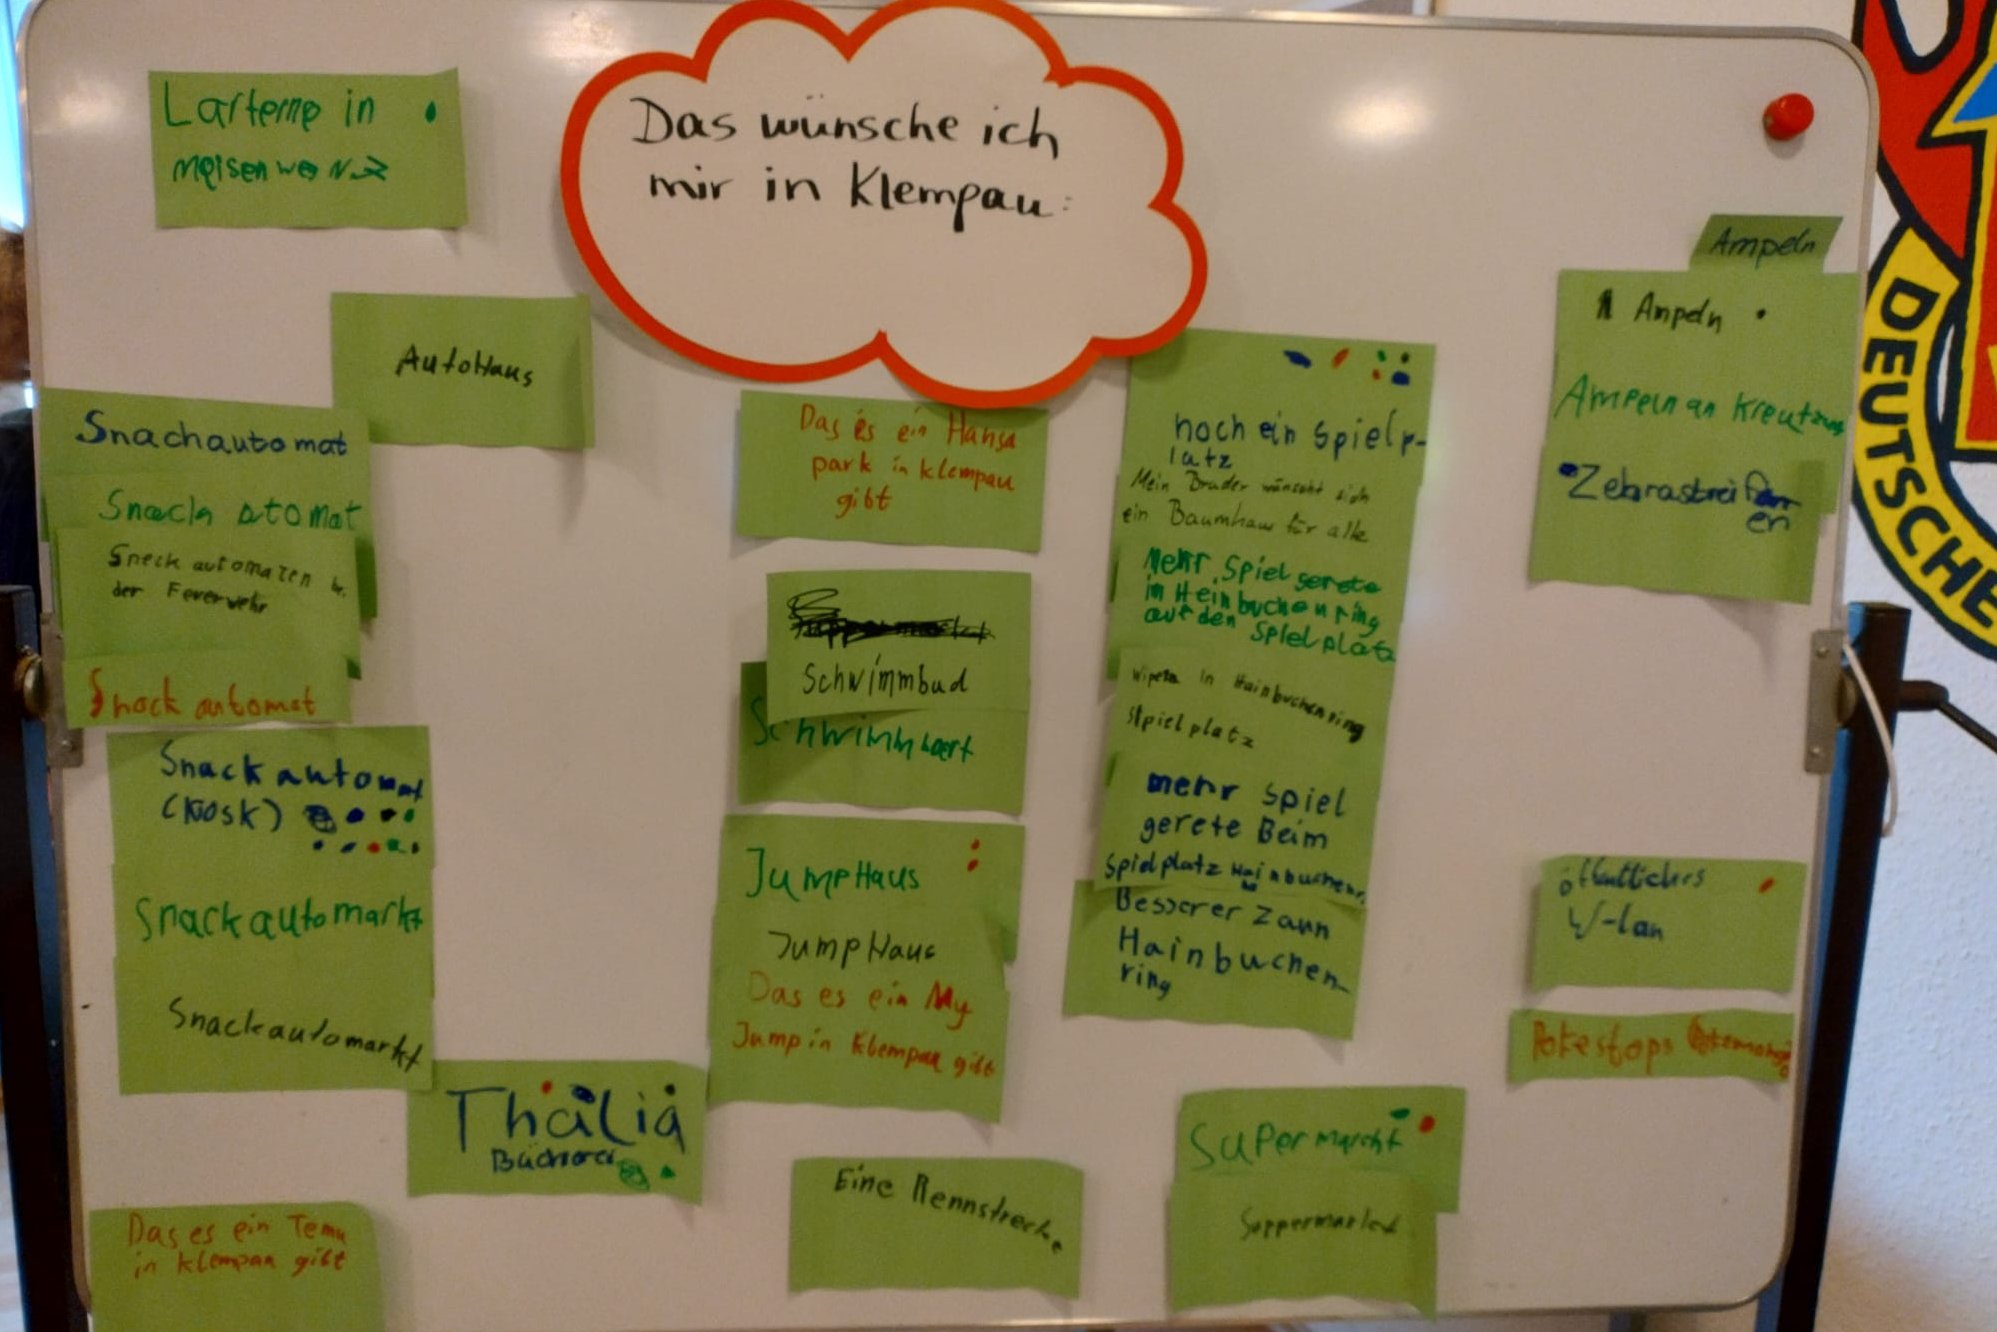 Das wünsche ich
mir in Klempau:
Larterne in
meisenweg
AutoHaus
Snachautomat
Snack atomat
Sneck automaten
der Feverwehr
Snack automat
Snackautomat
(KiosK)
Snackautomarkt
Snackautomarkt
Thalia
Das es ein Temu
in Klempau gibt
Das es ein Hansa
park in Klempau
gibt
Schwimmbad
JumpHaus
JumpHaus
Das es ein My
Jump in Klempau gibt
Eine Rennstrecke
noch ein Spielp-
latz
Mein Bruder wünscht sich
ein Baumhaus für alle
Mehr Spiel gerete
im Heinbuchenring
auf den Spielplatz
in Hainbuchenring
Spielplatz
mehr Spiel
gerete Beim
Spielplatz Hainbuchenr.
Besserer Zaun
Hainbuchen-
ring
Supermarcht
Suppermarket
Ampeln
Ampeln
Ampeln an Kreutzung
Zebrastreifen
en
öffentliches
W-lan
Pokestops
DEUTSCHE